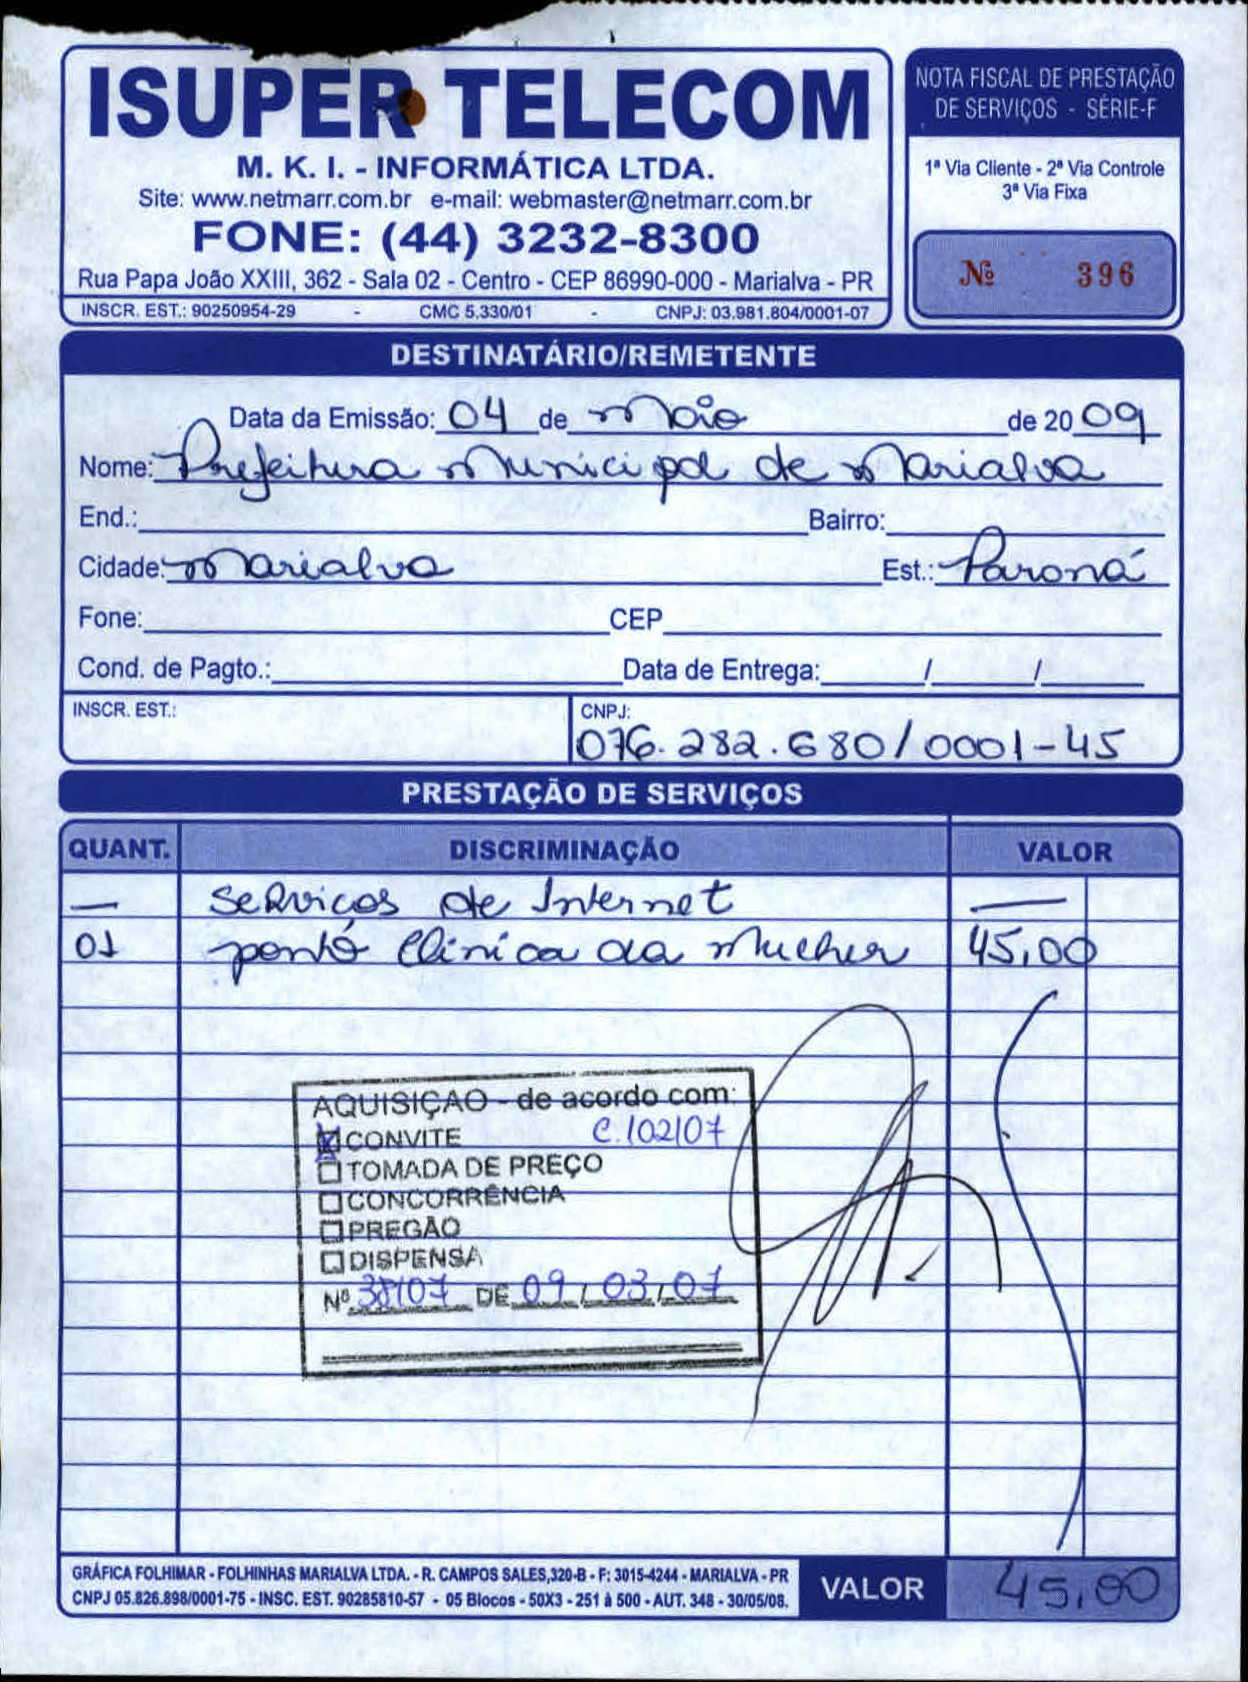 ISUPER TELECOM
M. K. I. - INFORMÁTICA LTDA.
Site: www.netmarr.com.br e-mail: webmaster@netmarr.com.br
FONE: (44) 3232-8300
Rua Papa João XXIII, 362 - Sala 02 - Centro - CEP 86990-000 - Marialva - PR
INSCR. EST.: 90250954-29 - CMC 5.330/01 - CNPJ: 03.981.804/0001-07
NOTA FISCAL DE PRESTAÇÃO
DE SERVIÇOS - SÉRIE-F
1ª Via Cliente - 2ª Via Controle
3ª Via Fixa
Nº 396
DESTINATÁRIO/REMETENTE
Data da Emissão: 04 de Maio de 2009
Nome: Prefeitura Municipal de Marialva
End.: Bairro:
Cidade: Marialva Est.: Paraná
Fone: CEP
Cond. de Pagto.: Data de Entrega: / /
INSCR. EST.: CNPJ:
076.282.680/0001-45
PRESTAÇÃO DE SERVIÇOS
QUANT. DISCRIMINAÇÃO VALOR
— Serviços de Internet —
01 ponto Clinica da Mulher 45,00
AQUISIÇAO - de acordo com:
CONVITE C.102/07
TOMADA DE PREÇO
CONCORRÊNCIA
PREGÃO
DISPENSA
Nº 38/07 DE 09/03/07
GRÁFICA FOLHIMAR - FOLHINHAS MARIALVA LTDA. - R. CAMPOS SALES,320-B - F: 3015-4244 - MARIALVA - PR
CNPJ 05.826.898/0001-75 - INSC. EST. 90285810-57 - 05 Blocos - 50X3 - 251 à 500 - AUT. 348 - 30/05/08.
VALOR 45,00